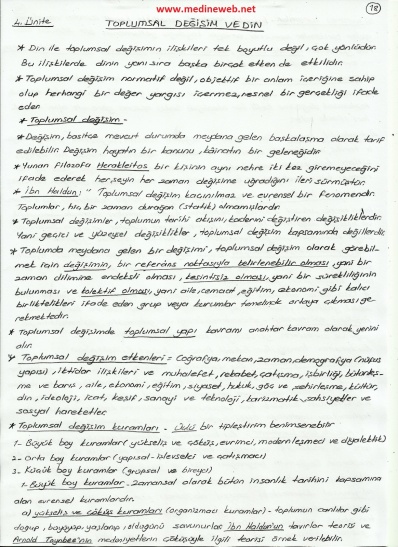 www.medineweb.net
18
4. Ünite
TOPLUMSAL DEĞİŞİM VE DİN
* Din ile toplumsal değişimin ilişkileri tek boyutlu değil, çok yönlüdür.
Bu ilişkilerde dinin yanı sıra başka birçok etken de etkilidir.
* Toplumsal değişim normatif değil, objektif bir anlam içeriğine sahip
olup herhangi bir değer yargısı içermez, nesnel bir gerçekliği ifade
eder.
* Toplumsal değişim -
* Değişim, basitçe mevcut durumda meydana gelen başkalaşma olarak tarif
edilebilir. Değişim hayatın bir kanunu, kâinatın bir geleneğidir.
* Yunan Filozofu Herakleitos bir kişinin aynı nehre iki kez giremeyeceğini
ifade ederek herşeyin her zaman değişime uğradığını ileri sürmüştür.
* İbn Haldun: "Toplumsal değişim kaçınılmaz ve evrensel bir fenomendir.
Toplumlar, hiçbir zaman durağan (statik) olmamışlardır
* Toplumsal değişimler, toplumun tarihi akışını, kaderini değiştiren değişikliklerdir.
Yani geçici ve yüzeysel değişiklikler, toplumsal değişim kapsamında değillerdir.
* Toplumda meydana gelen bir değişimi, toplumsal değişim olarak görebil-
mek için değişimin, bir referans noktasıyla belirlenebilir olması, yani bir
zaman dilimine endeksli olması, kesintisiz olması, yani bir sürekliliğinin
bulunması ve kolektif olması, yani aile, cemaat, eğitim, ekonomi gibi kalıcı
birliktelikleri ifade eden grup veya kurumlar temelinde ortaya çıkması ge-
rekmektedir.
* Toplumsal değişimde toplumsal yapı kavramı anahtar kavram olarak yerini
alır.
Toplumsal değişim etkenleri = Coğrafya, mekan, zaman, demografya (nüfus
yapısı), iktidar ilişkileri ve muhalefet, rekabet, çatışma, işbirliği, bütünleş-
me ve barış, aile, ekonomi, eğitim, siyaset, hukuk, göç ve şehirleşme, kültür,
din, ideoloji, icat, keşif, sanayi ve teknoloji, karizmatik şahsiyetler ve
sosyal hareketler
* Toplumsal değişim kuramları - Üçlü bir tipleştirim benimsenebilir
1- Büyük boy kuramlar (yükseliş ve çöküş, evrimci, modernleşmeci ve diyalektik)
2- Orta boy kuramlar (yapısal-işlevselci ve çatışmacı)
3- Küçük boy kuramlar (grupsal ve bireyci)
1- Büyük boy kuramlar - zamansal olarak bütün insanlık tarihini kapsamına
alan evrensel kuramlardır.
a) yükseliş ve çöküş kuramları (organizmacı kuramlar) - toplumun canlılar gibi
doğup, büyüyüp, yaşlanıp, öldüğünü savunurlar. İbn Haldun'un tavırlar teorisi ve
Arnold Toynbee'nin medeniyetlerin çöküşüyle ilgili teorisi örnek verilebilir.